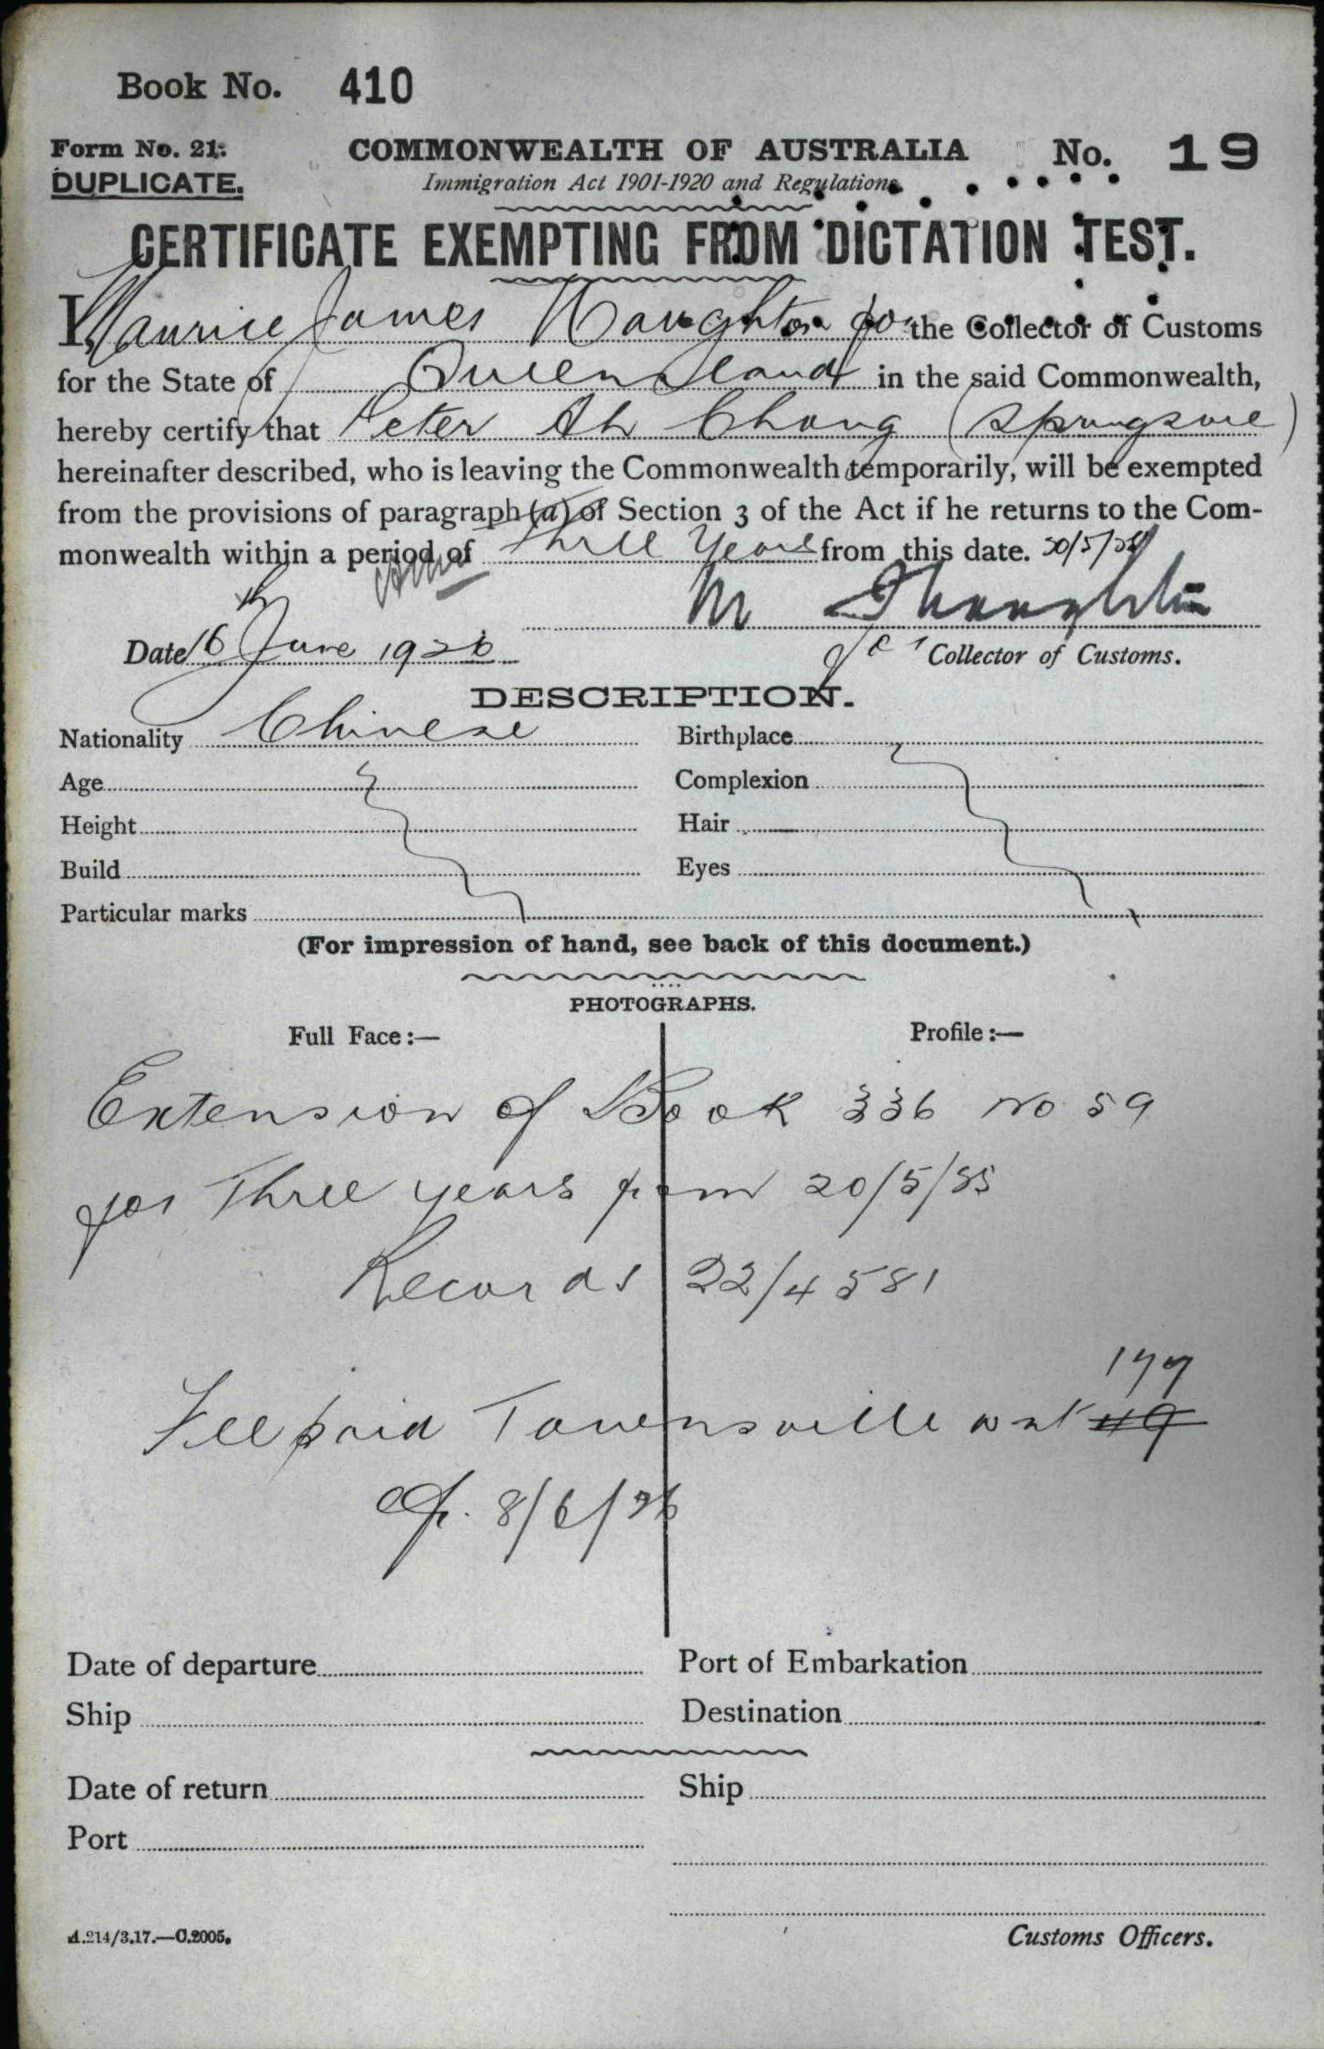 Book No. 410
Form No. 21.
COMMONWEALTH OF AUSTRALIA
No. 19
DUPLICATE.
Immigration Act 1901-1920 and Regulations.
CERTIFICATE EXEMPTING FROM DICTATION TEST.
I, Maurice James Naughton for the Collector of Customs
for the State of Queensland in the said Commonwealth,
hereby certify that Peter Ah Chong (Springsure)
hereinafter described, who is leaving the Commonwealth temporarily, will be exempted
from the provisions of paragraph (a) of Section 3 of the Act if he returns to the Com-
monwealth within a period of Three Years from this date.
Date 16th June 1926
for Collector of Customs.
DESCRIPTION.
Nationality Chinese Birthplace
Age Complexion
Height Hair
Build Eyes
Particular marks
(For impression of hand, see back of this document.)
PHOTOGRAPHS.
Full Face:— Profile:—
Extension of Book 336 No 59
for Three years from 20/5/
Records 22/4581
Fee paid Townsville 177
8/6/26
Date of departure Port of Embarkation
Ship Destination
Date of return Ship
Port
A.214/3.17.—C.2005.
Customs Officers.